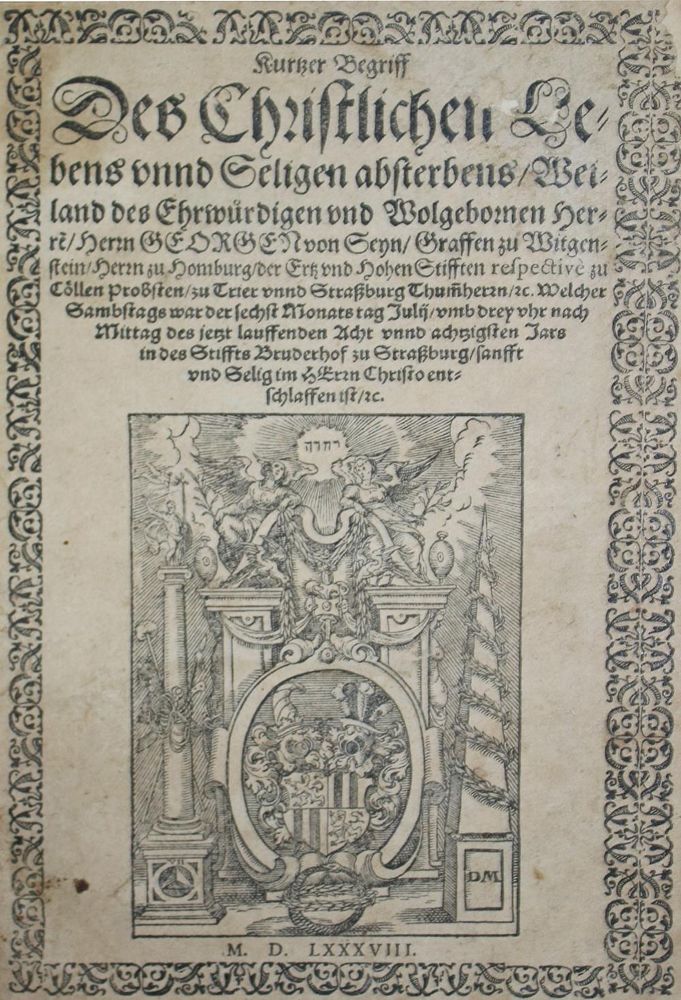 Kurtzer Begriff
Des Christlichen Le-
bens vnnd Seligen absterbens/Wei-
land des Ehrwürdigen vnd Wolgebornen Her-
rē/Herrn GEORGEN von Seyn/Graffen zu Witgen-
stein/Herrn zu Homburg/der Ertz vnd Hohen Stifften respectivè zu
Cöllen Probsten/zu Trier vnnd Straßburg Thum̃herrn/ꝛc. Welcher
Sambstags war der sechst Monats tag Julij/vmb drey vhr nach
Mittag des jetzt lauffenden Acht vnnd achtzigsten Jars
in des Stiffts Bruderhof zu Straßburg/sanfft
vnd Selig im HErrn Christo ent-
schlaffen ist/ꝛc.
יהוה
DM
M. D. LXXXVIII.